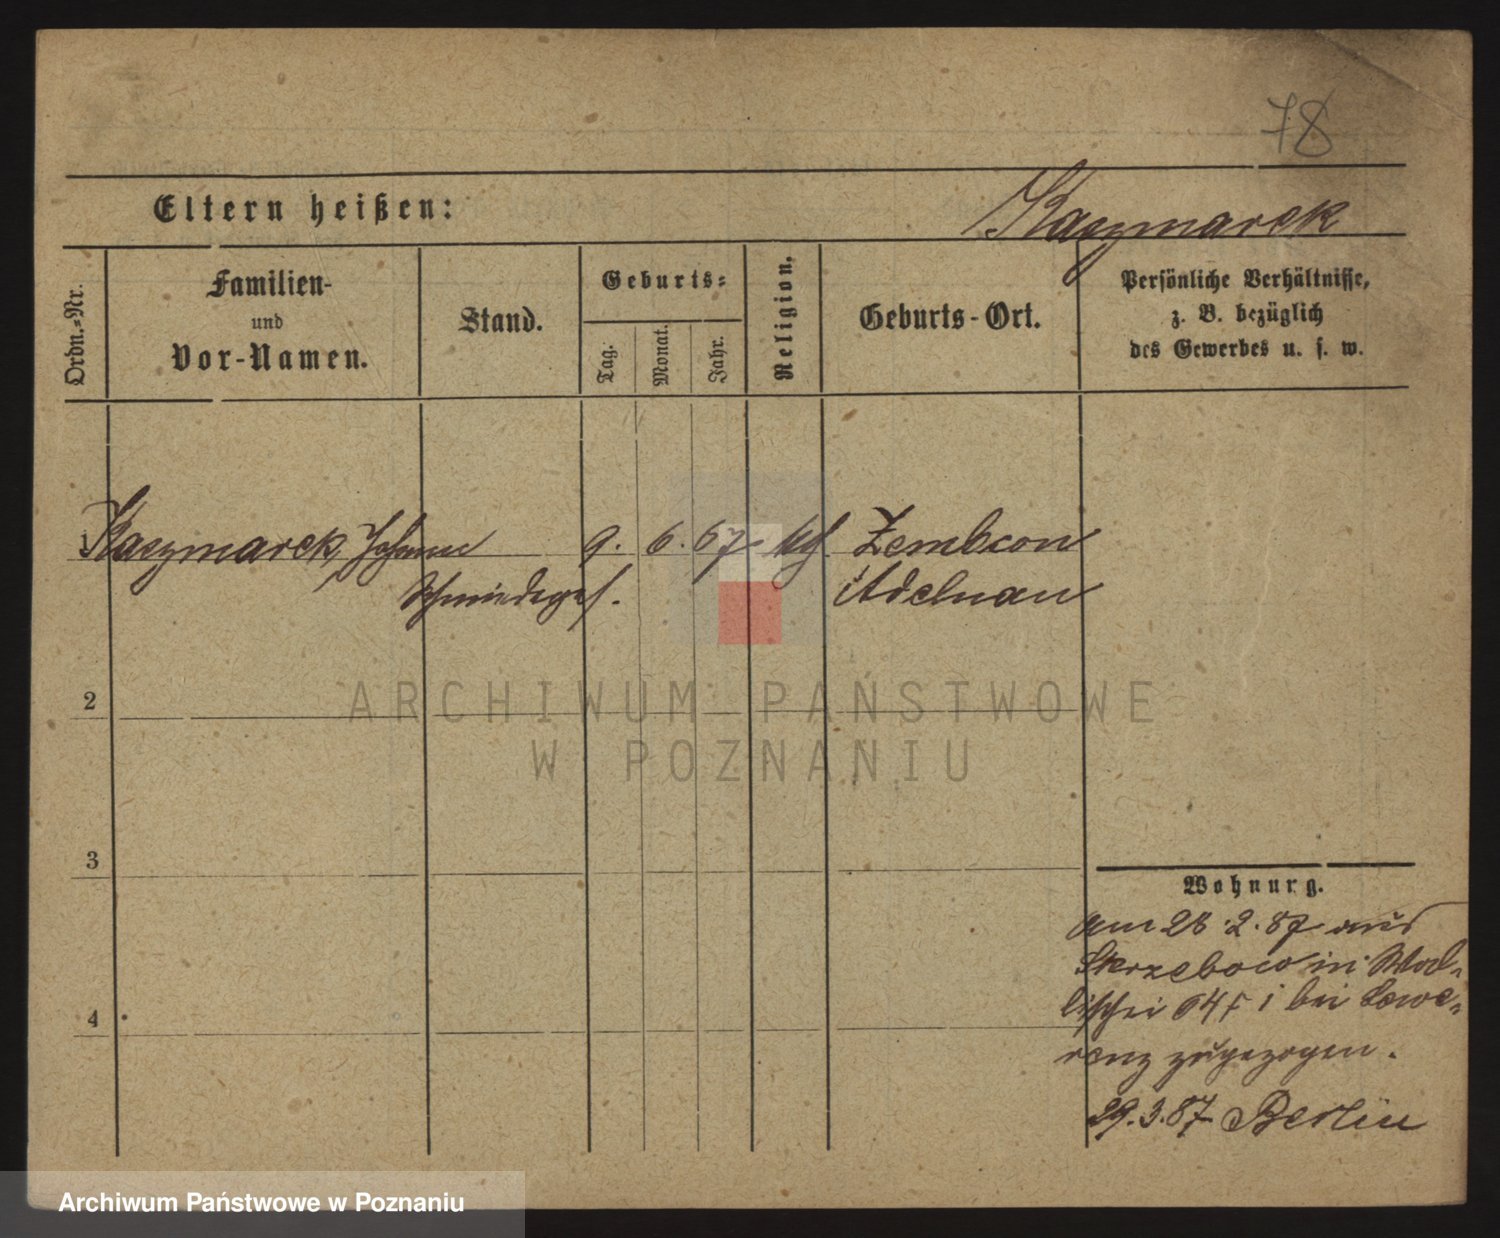 78
Eltern heißen:
Kaczmarek
Ordn.=Nr.
Familien-
und
Vor-Namen.
Stand.
Geburts=
Tag.
Monat.
Jahr.
Religion.
Geburts-Ort.
Persönliche Verhältnisse,
z. B. bezüglich
des Gewerbes u. s. w.
1 Kaczmarek, Johann 9. 6. 67 kth. Zembcow
Schmiedeges. Adelnau
2
ARCHIWUM PAŃSTWOWE
W POZNANIU
3
Wohnung.
am 28.2.87 aus
Skrzebow in Wal-
lischei 64 bei Lawe-
renz zugezogen.
4
29.3.87 Berlin
Archiwum Państwowe w Poznaniu